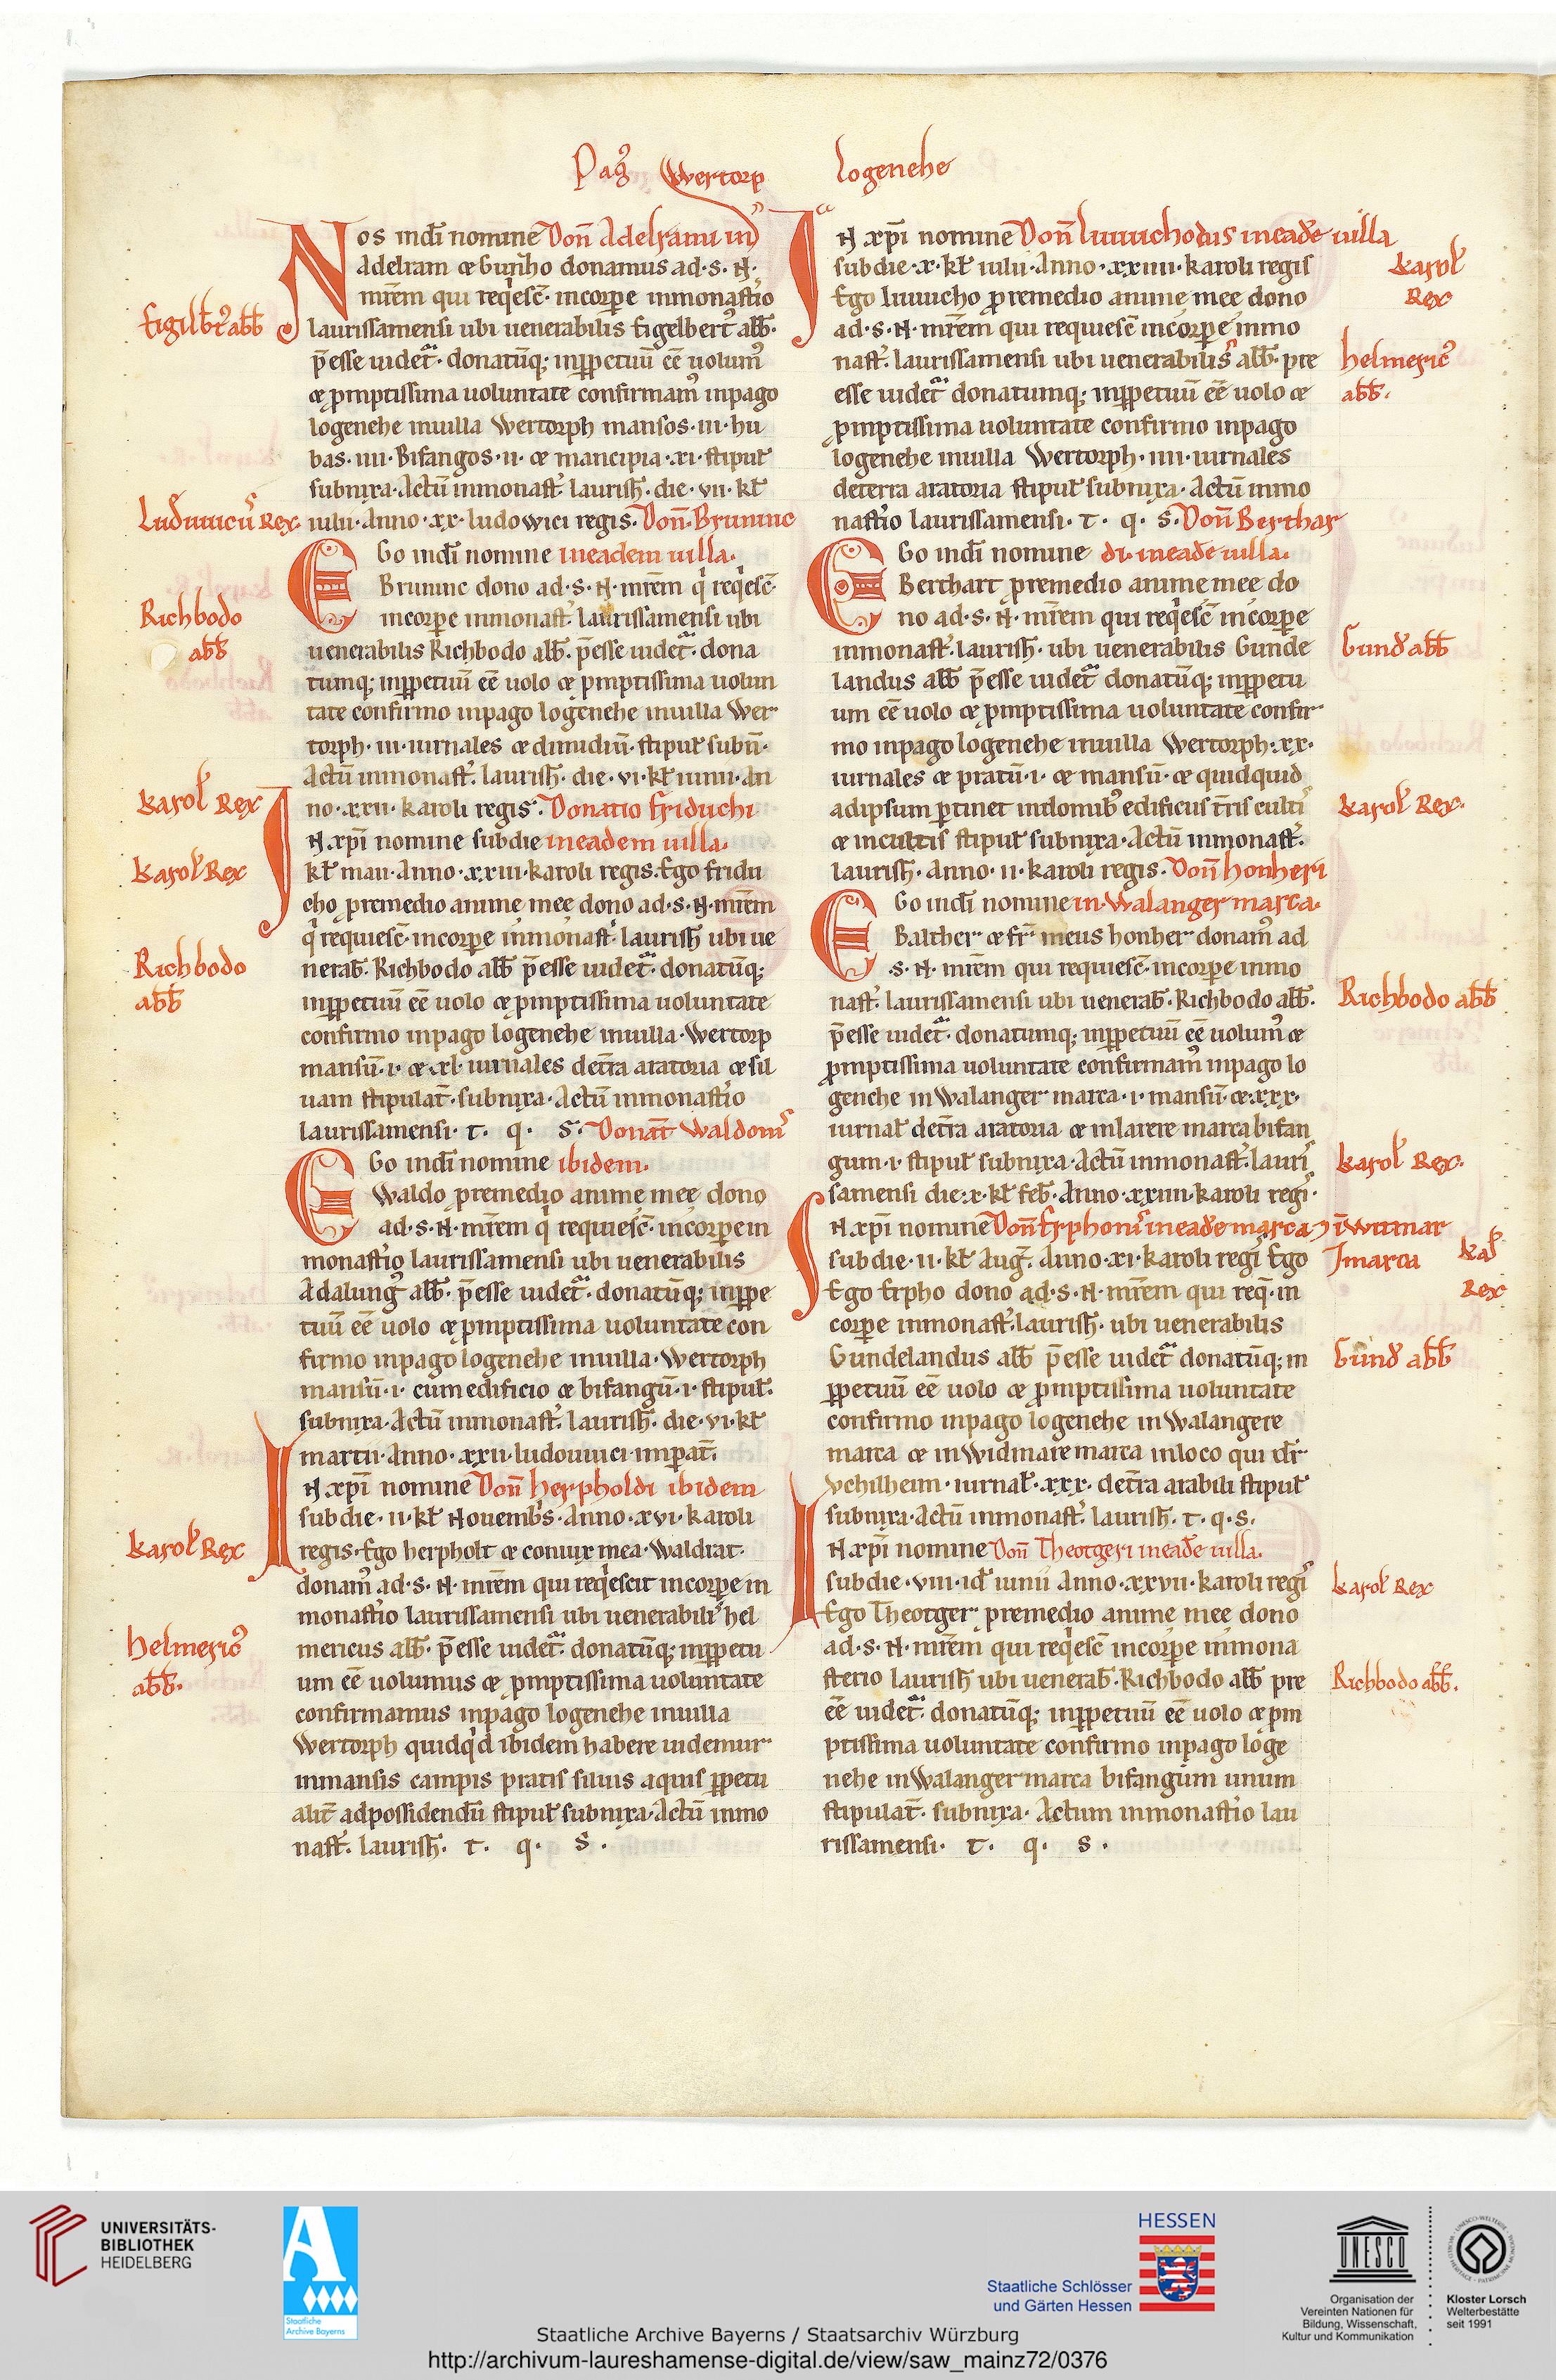 Pag᷒ Wertorp logenehe
Nos indī nomine Don̄ Adelramī in
Adelram & Gunho donamus ad·s·N·
mr̄em qui req'esc̄· incorꝑe inmonast'io
Eigilb̄t᷒ abb̄
laurissamensi ubi uenerabilis Eigelbert᷒ abb̄·
p̄esse uidet᷑· donatūq; inꝑpetuū eē uolum᷒
& ꝓmptissima uoluntate confirmam᷒ inpago
logenehe inuilla Wertorph mansos·iii·hu
bas·iiii·Bifangos·ii· & mancipia·xi·stipul̄
subnixa·Actū inmonast̄· laurish̄· die·vii·kl̄
Luduuicus Rex
iulii·Anno·xx·ludowici regis. Don̄·Bruninc
Ego indī nomine ineadem uilla.
Bruninc dono ad·s·N·mr̄em q' req'esc̄·
Richbodo
incorꝑe inmonast̄· laurissamensi ubi
abb̄
uenerabilis Richbodo abb̄· p̄esse uidet᷑· dona
tumq; inꝑpetuū eē uolo & ꝓmptissima uolun
tate confirmo inpago logenehe inuilla Wer
torph·iii·iurnales & dimidiū·stipul̄ subn̄·
Actū inmonast̄· laurish̄· die·vi·kl̄ iunii·An
karol̄ Rex
no·xxii·karoli regis. Donatio friduchi
IN xp̄i nomine subdie ineadem uilla.
karol̄ Rex
kl̄ maii·Anno·xxiii·karoli regis·Ego fridu
cho ꝓremedio anime mee dono ad·s·N·mr̄em
q' requiesc̄· incorꝑe inmonast̄· laurish̄ ubi ue
Richbodo
nerab̄· Richbodo abb̄ p̄esse uidet᷑· donatūq;
abb̄
inꝑpetuū eē uolo & ꝓmptissima uoluntate
confirmo inpago logenehe inuilla·Wertorp
mansū·i· & xl·iurnales det̄ra aratoria & sil
uam stipulat̄·subnixa·Actū inmonast'io
laurissamensi· t· q· s· Donat̄ Waldonis
Ego indī nomine ibidem.
Waldo ꝓremedio anime mee dono
ad·s·N·mr̄em q' requiesc̄· incorꝑe in
monast'io laurissamensi ubi uenerabilis
Adalung᷒ abb̄· p̄esse uidet᷑· donatūq; inꝑpe
tuū eē uolo & ꝓmptissima uoluntate con
firmo inpago logenehe inuilla·Wertorph
mansū·i· cum edificio & bifangū·i·stipul̄·
subnixa·Actū inmonast̄· laurish̄· die·vi·kl̄
martii·Anno·xxii·ludouuici inꝑat̄·
IN xp̄i nomine Don̄ herpholdi ibidem
subdie·ii·kl̄ Nouemb's·Anno·xvi·karoli
karol̄ Rex
regis·Ego herpholt & coniux mea·Waldrat·
donam᷒ ad·s·N·mr̄em qui req'escit incorꝑe in
monast'io laurissamensi ubi uenerabilis hel
helmeric᷒
mericus abb̄· p̄esse uidet᷑· donatūq; inꝑpetu
abb̄·
um eē uolumus & ꝓmptissima uoluntate
confirmamus inpago logenehe inuilla
Wertorph quidq'd ibidem habere uidemur
inmansis campis pratis siluis aquis ꝑpetu
alit̄ adpossidendū stipul̄ subnixa·Actū inmo
nast̄· laurish̄· t· q· s·
IN xp̄i nomine Don̄ luuuchodus ineadē uilla
karol̄
subdie·x·kl̄ iulii·Anno·xxiiii·karoli regis
Rex
Ego luuucho ꝓremedio anime mee dono
ad·s·N·mr̄em qui requiesc̄ incorꝑe inmo
nast̄· laurissamensi ubi uenerabilis abb̄· pre
helmeric᷒
esse uidet᷑ donatumq; inꝑpetuū eē uolo &
abb̄·
ꝓmptissima uoluntate confirmo inpago
logenehe inuilla Wertorph·iiii·iurnales
deterra aratoria stipul̄ subnixa·Actū inmo
nast'io laurissamensi· t· q· s· Don̄ Berthar
Ego indī nomine di· ineadē uilla.
Berthart ꝓremedio anime mee do
no ad·s·N·mr̄em qui req'esc̄ incorꝑe
inmonast̄· laurish̄· ubi uenerabilis Gunde
Gund̄ abb̄
landus abb̄ p̄esse uidet᷑ donatūq; inꝑpetu
um eē uolo & ꝓmptissima uoluntate confir
mo inpago logenehe inuilla Wertorph·xx·
iurnales & pratū·i· & mansū· & quidquid
adipsum ꝑtinet indomib᷒ edificiis t̄ris culti᷒
karol̄ Rex·
& incultis stipul̄ subnixa·Actū inmonast̄·
laurish̄· Anno·ii·karoli regis· Don̄ honheri
Ego indī nomine in·Walanger marca·
Balther & fr̄ meus honher donam᷒ ad
·s·N· mr̄em qui requiesc̄· incorꝑe inmo
nast̄· laurissamensi ubi uenerab̄·Richbodo abb̄·
Richbodo abb̄
p̄esse uidet᷑· donatumq; inꝑpetuū eē uolum᷒ &
ꝓmptissima uoluntate confirmam᷒ inpago lo
genehe inWalanger marca·i·mansū· &·xxx·
iurnal̄ det̄ra aratoria & inlarere marca bifan
gum·i· stipul̄ subnixa·Actū inmonast̄· lauris
karol̄ Rex·
samensi die·x·kl̄ feb̄· Anno·xxiiii·karoli regis·
IN xp̄i nomine Don̄ Erphonis ineadē marca ⁊ ī Witmar
marca
subdie·ii·kl̄ Auḡ· Anno·xi·karoli regis Ego
kal̄
Rex
Ego Erpho dono ad·s·N·mr̄em qui req̄·in
corꝑe inmonast̄·laurish̄· ubi uenerabilis
Gundelandus abb̄ p̄esse uidet᷑ donatūq; in
Gund̄ abb̄
ꝑpetuū eē uolo & ꝓmptissima uoluntate
confirmo inpago logenehe inWalangere
marca & inWidmare marca inloco qui dr̄
Vchilheim·iurnal̄·xxx· det̄ra arabili stipul̄
subnixa·Actū inmonast̄· laurish̄· t·q·s·
IN xp̄i nomine Don̄ Theotgeri ineadē uilla.
subdie·viii·id̄ iunii Anno·xxvii·karoli regis
karol̄ Rex
Ego Theotger ꝓremedio anime mee dono
ad·s·N·mr̄em qui req'esc̄ incorꝑe inmona
sterio laurish̄ ubi uenerab̄·Richbodo abb̄ pre
Richbodo abb̄·
eē uidet᷑· donatūq; inꝑpetuū eē uolo & ꝓm
ptissima uoluntate confirmo inpago loge
nehe inWalanger marca bifangum unum
stipulat̄· subnixa· Actum inmonast'io lau
rissamensi· t· q· s·
UNIVERSITÄTS-
BIBLIOTHEK
HEIDELBERG
Staatliche
Archive Bayerns
HESSEN
Staatliche Schlösser
und Gärten Hessen
UNESCO
Organisation der
Vereinten Nationen für
Bildung, Wissenschaft,
Kultur und Kommunikation
Kloster Lorsch
Welterbestätte
seit 1991
Staatliche Archive Bayerns / Staatsarchiv Würzburg
http://archivum-laureshamense-digital.de/view/saw_mainz72/0376